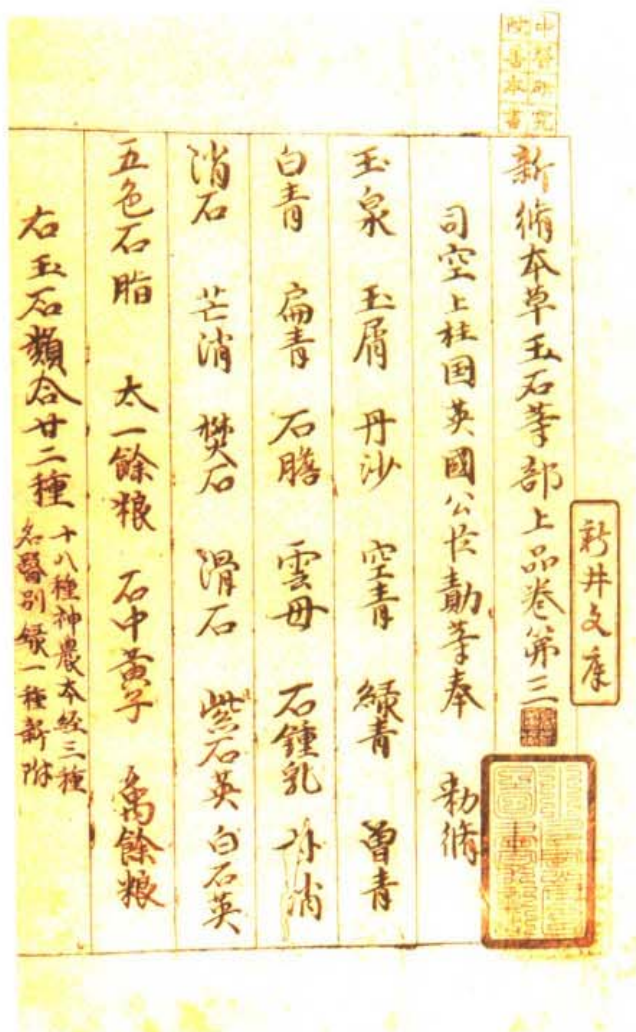 中醫研究
院善本書
新井文庫
新脩本草玉石等部上品卷第三
司空上柱国英國公臣勣等奉 勅脩
玉泉 玉屑 丹沙 空青 緑青 曽青
白青 扁青 石膽 雲母 石鍾乳 朴消
消石 芒消 礬石 滑石 紫石英 白石英
五色石脂 太一餘粮 石中黄子 禹餘粮
右玉石類合廿二種 十八種神農本経三種
名醫別録一種新附